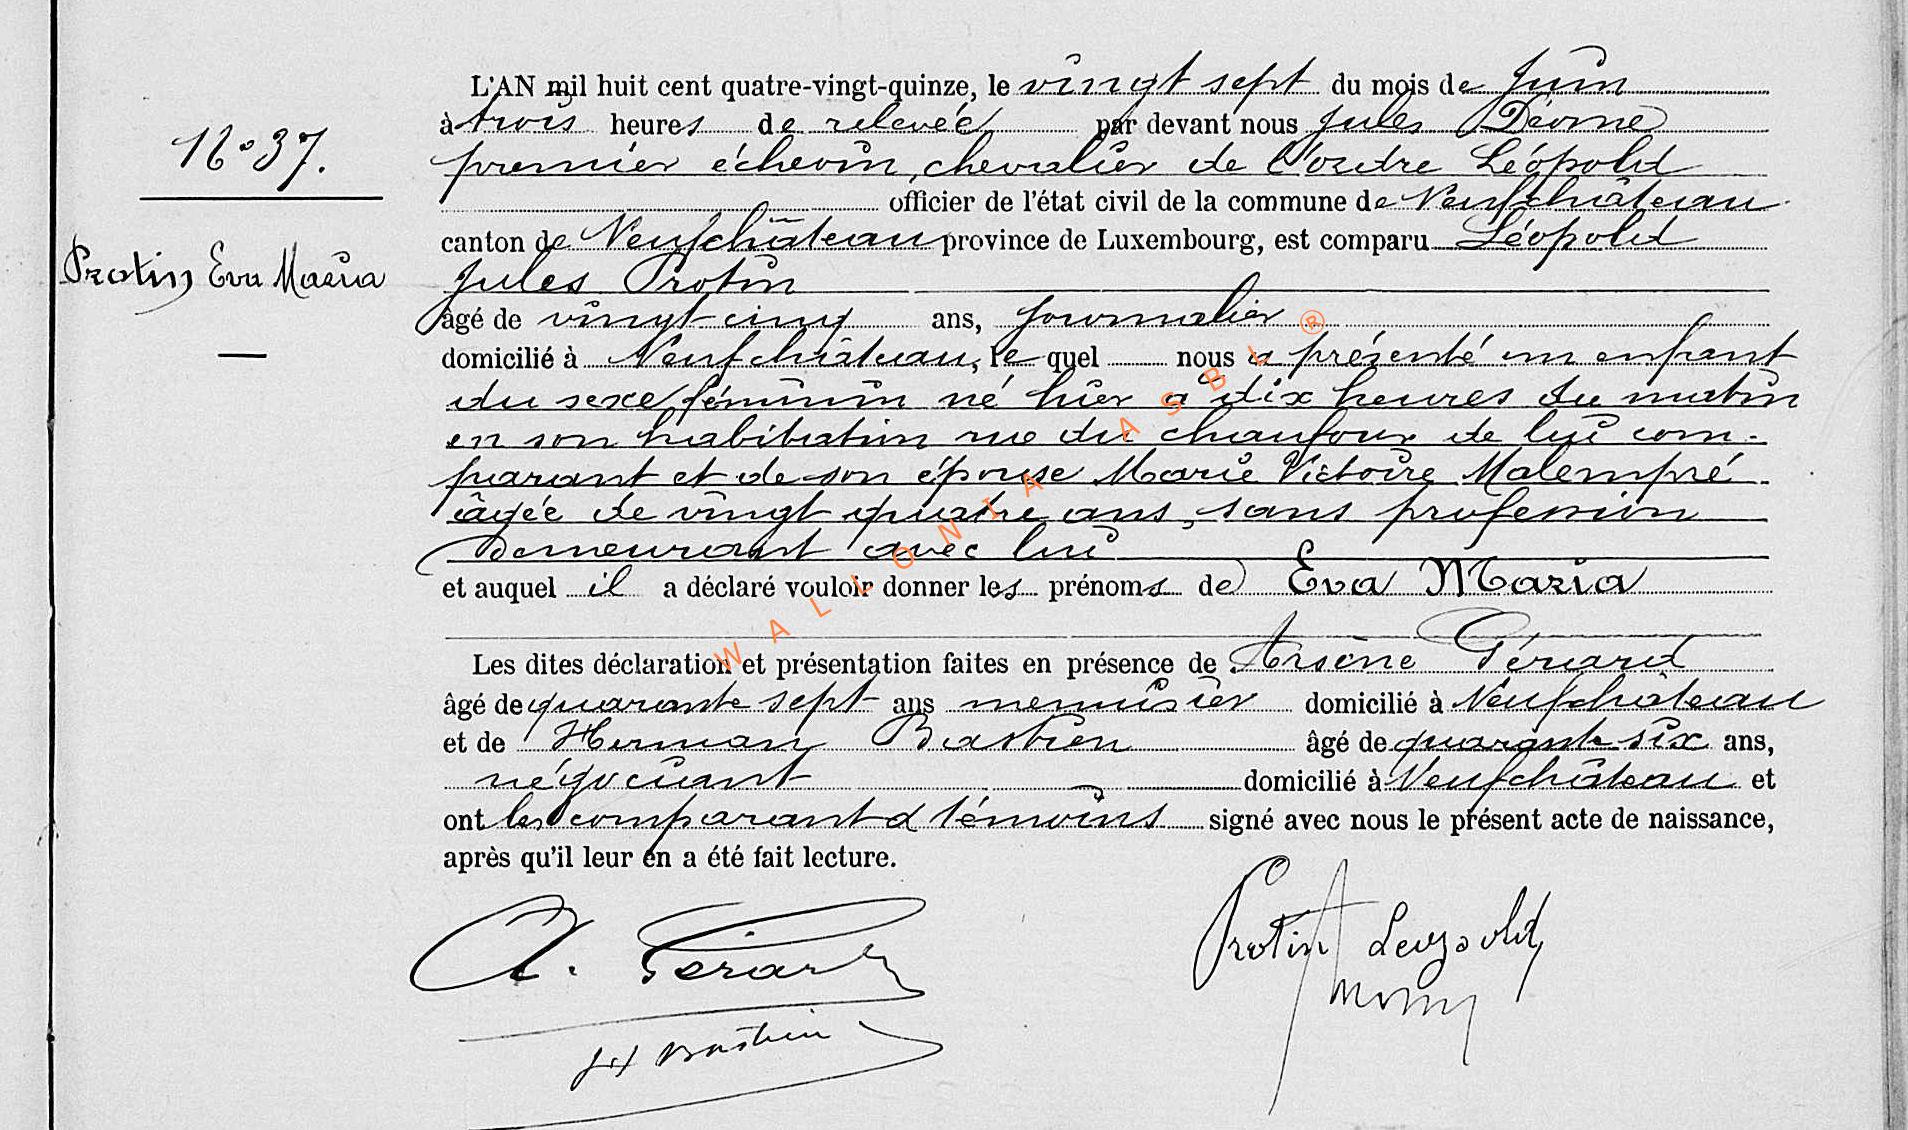 N° 37.
Protin Eva Maria
L'AN mil huit cent quatre-vingt-quinze, le vingt sept du mois de Juin
à trois heures de relevée par devant nous Jules
premier échevin, chevalier de l'ordre Léopold
officier de l'état civil de la commune de Neufchâteau
canton de Neufchâteau province de Luxembourg, est comparu Léopold
Jules Protin
âgé de vingt-cinq ans, journalier
domicilié à Neufchâteau, le quel nous a présenté un enfant
du sexe féminin né hier à dix heures du matin
en son habitation rue du chaufour de lui com-
parant et de son épouse Marie Victoire Malempré
âgée de vingt quatre ans, sans profession
demeurant avec lui
et auquel il a déclaré vouloir donner les prénoms de Eva Maria
Les dites déclaration et présentation faites en présence de Arsène Gérard
âgé de quarante sept ans menuisier domicilié à Neufchâteau
et de Herman Bastien âgé de quarante six ans,
négociant domicilié à Neufchâteau et
ont les comparant & témoins signé avec nous le présent acte de naissance,
après qu'il leur en a été fait lecture.
A. Gérard
Protin Leopold
H Bastien
WALLONIA ASBL ®